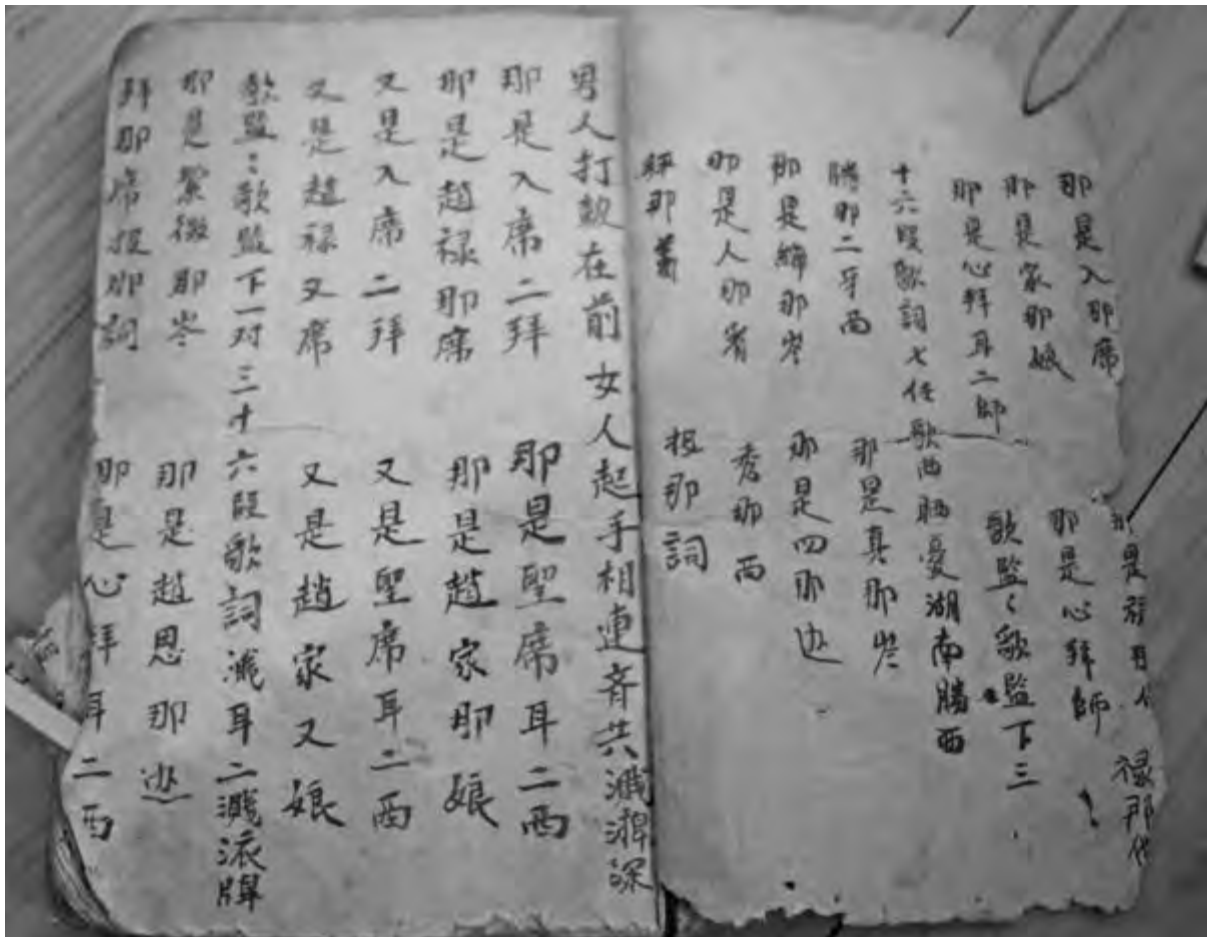 那是入那席 那是
祿那
那是家那娘 那是心拜師
那是心拜耳二師 歌監〻歌監下三
十六段歌詞七任歌曲晒憂湖南勝西
勝那二牙西 那是真那岑
那是綿那岑 那是四那边
那是人那省 秀那西
拜那 投那詞
男人打鼓在前女人起手相連音共濺深
那是入席二拜 那是聖席耳二西
那是趙祿那席 那是趙家那娘
又是入席二拜 又是聖席耳二西
又是趙祿又席 又是趙家又娘
歌監〻歌監下一对三十六段歌詞濺耳二濺流牌
那是緊微那岑 那是趙恩那边
拜那席投那詞 那是心拜耳二西